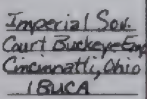 Imperial Sov.
Court Buckeye Emp
Cincinnatti, Ohio
IBUCA